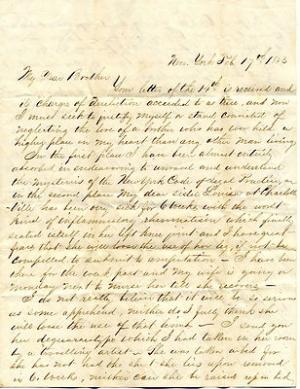 New York Feb 17th 18
My Dear Brother
Your letter of the 14th is received and
its charge of dereliction acceeded to as true, and now
I must seek to justify myself or stand convicted of
neglecting the love of a brother who has ever held a
higher place in my heart than any other man living
In the first place I have been almost entirely
absorbed in endeavoring to unravel and understand
the mysteries of the New York Code of Practice, &
in the second place My dear sister Louisa at
ville has been very sick for 6 weeks with the worst
kind of inflammatory rheumatism which finally
seated itself in her left knee joint and I have great
fears that she will loose the use of her leg, if not be
compelled to submit to amputation - I have been
there for the week past and my wife is going on
Monday next to nurse her till she recovers -
I do not really believe that it will be so serious
as some apprehend, neither do I fully think she
will loose the use of that limb - I send you
her deguarreotype which I had taken in her room
by a travelling artist - She was taken abed for
she has not had the sheet she lies upon removed
in 6 weeks, neither can she be raised upon her